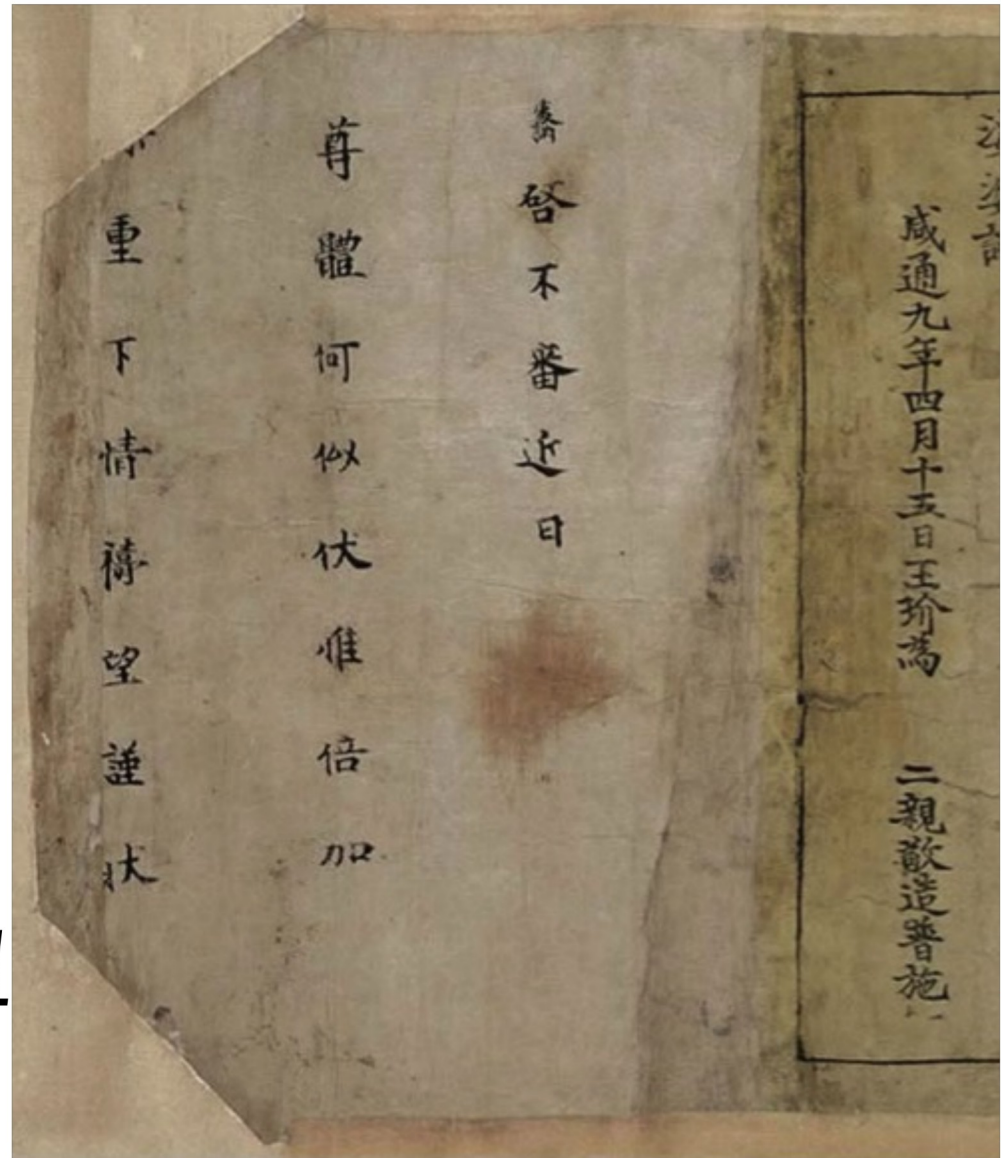 咸通九年四月十五日王玠為 二親敬造普施
啓不審近日
尊體何似伏惟倍加
重下情禱望謹狀